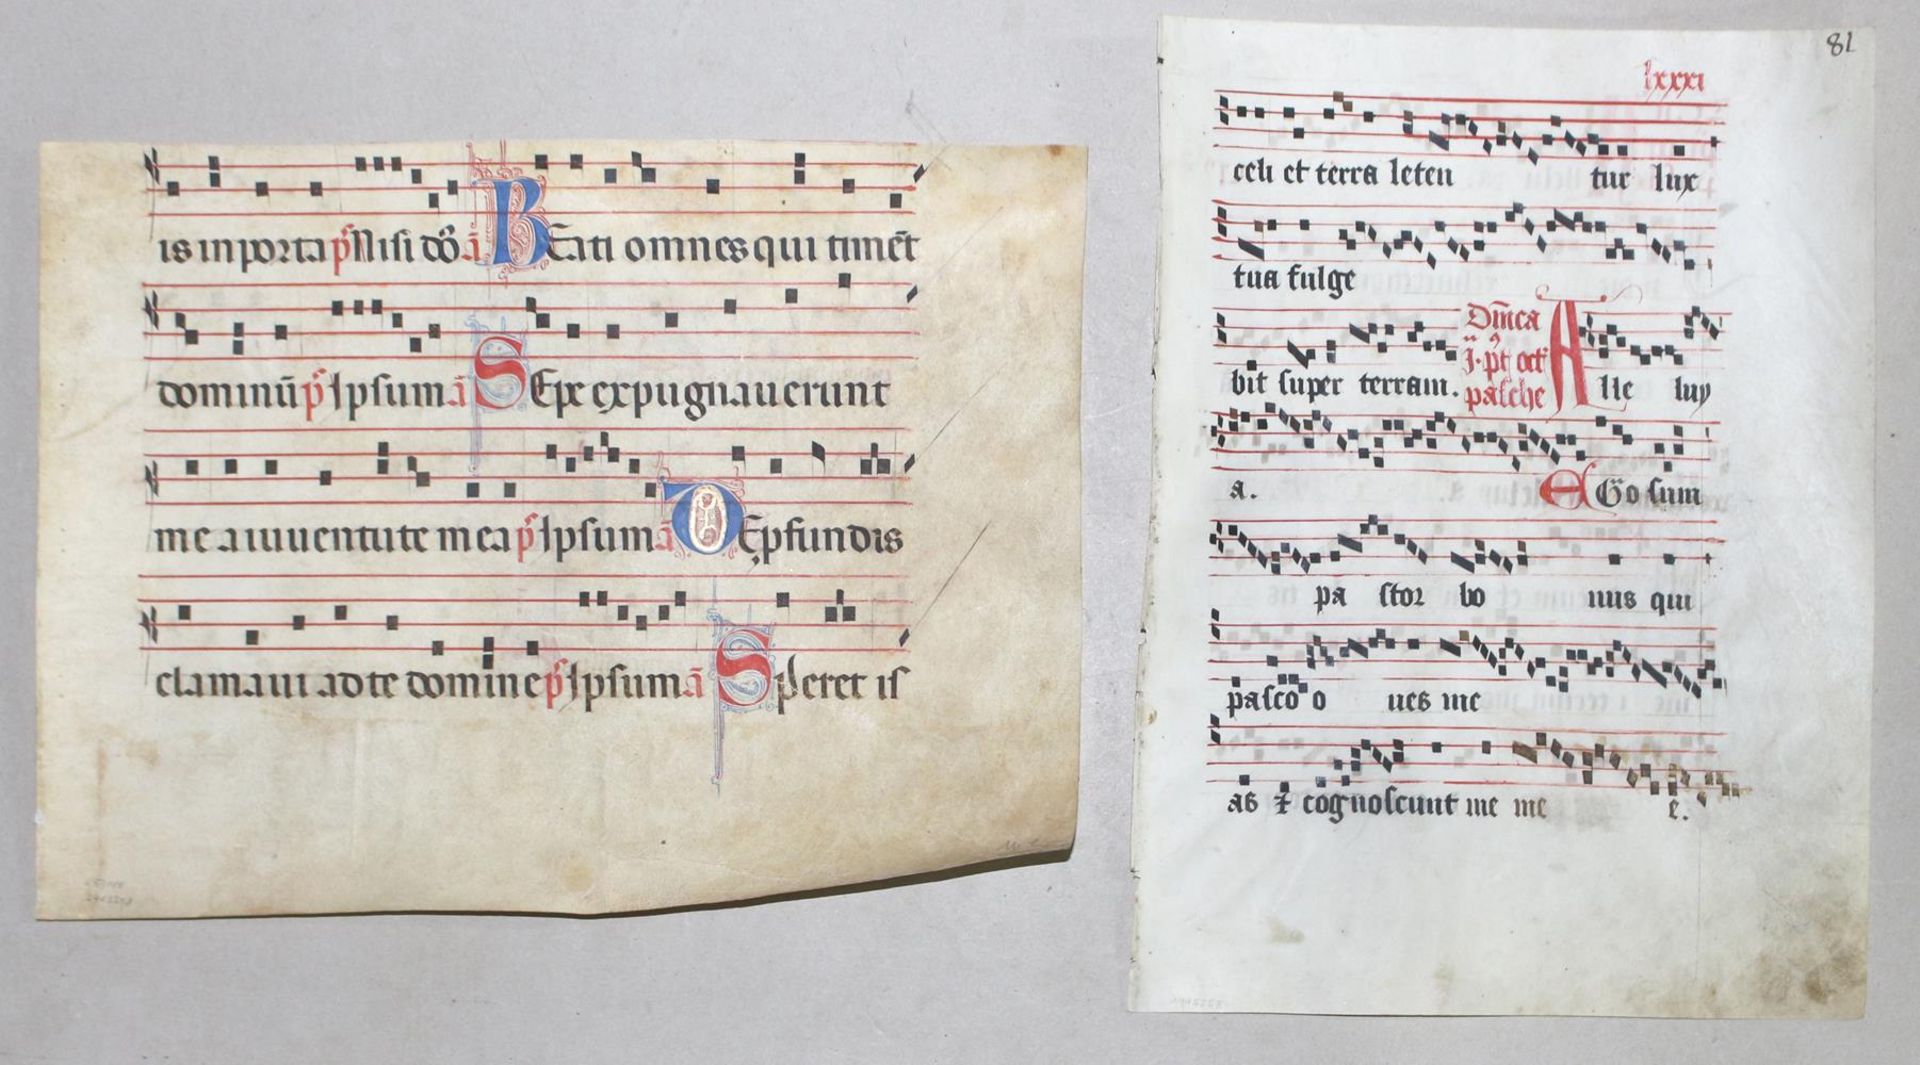 is in porta p̄s Nisi dōs ā BEati omnes qui timēt
dominū p̄s Ipsum ā SEpe expugnauerunt
me a iuuentute mea p̄s Ipsum ā DE pfundis
clamaui ad te domine p̄s Ipsum ā Speret isr
81
lxxxi
celi et terra leten tur lux
tua fulge
bit super terram. Dñica ij. pꝰ oct pasche Alle luy
a. EGo sum
pa stor bo nus qui
pasco o ues me
as ⁊ cognoscunt me me e.